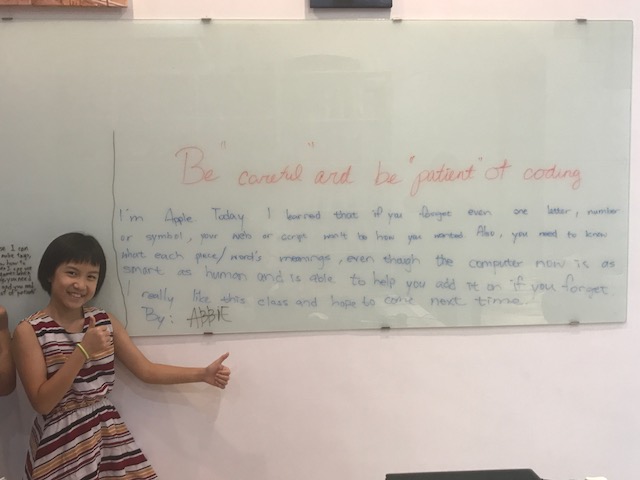 Be "careful" and be "patient" of coding
I'm Apple Today I learned that if you forget even one letter, number
or symbol, your or script won't be how you wanted. Also, you need to know
what each piece/word's meanings, even though the computer now is as
smart as human and is able to help you add it on if you forget.
I really like this class and hope to come next time
By: ABBIE